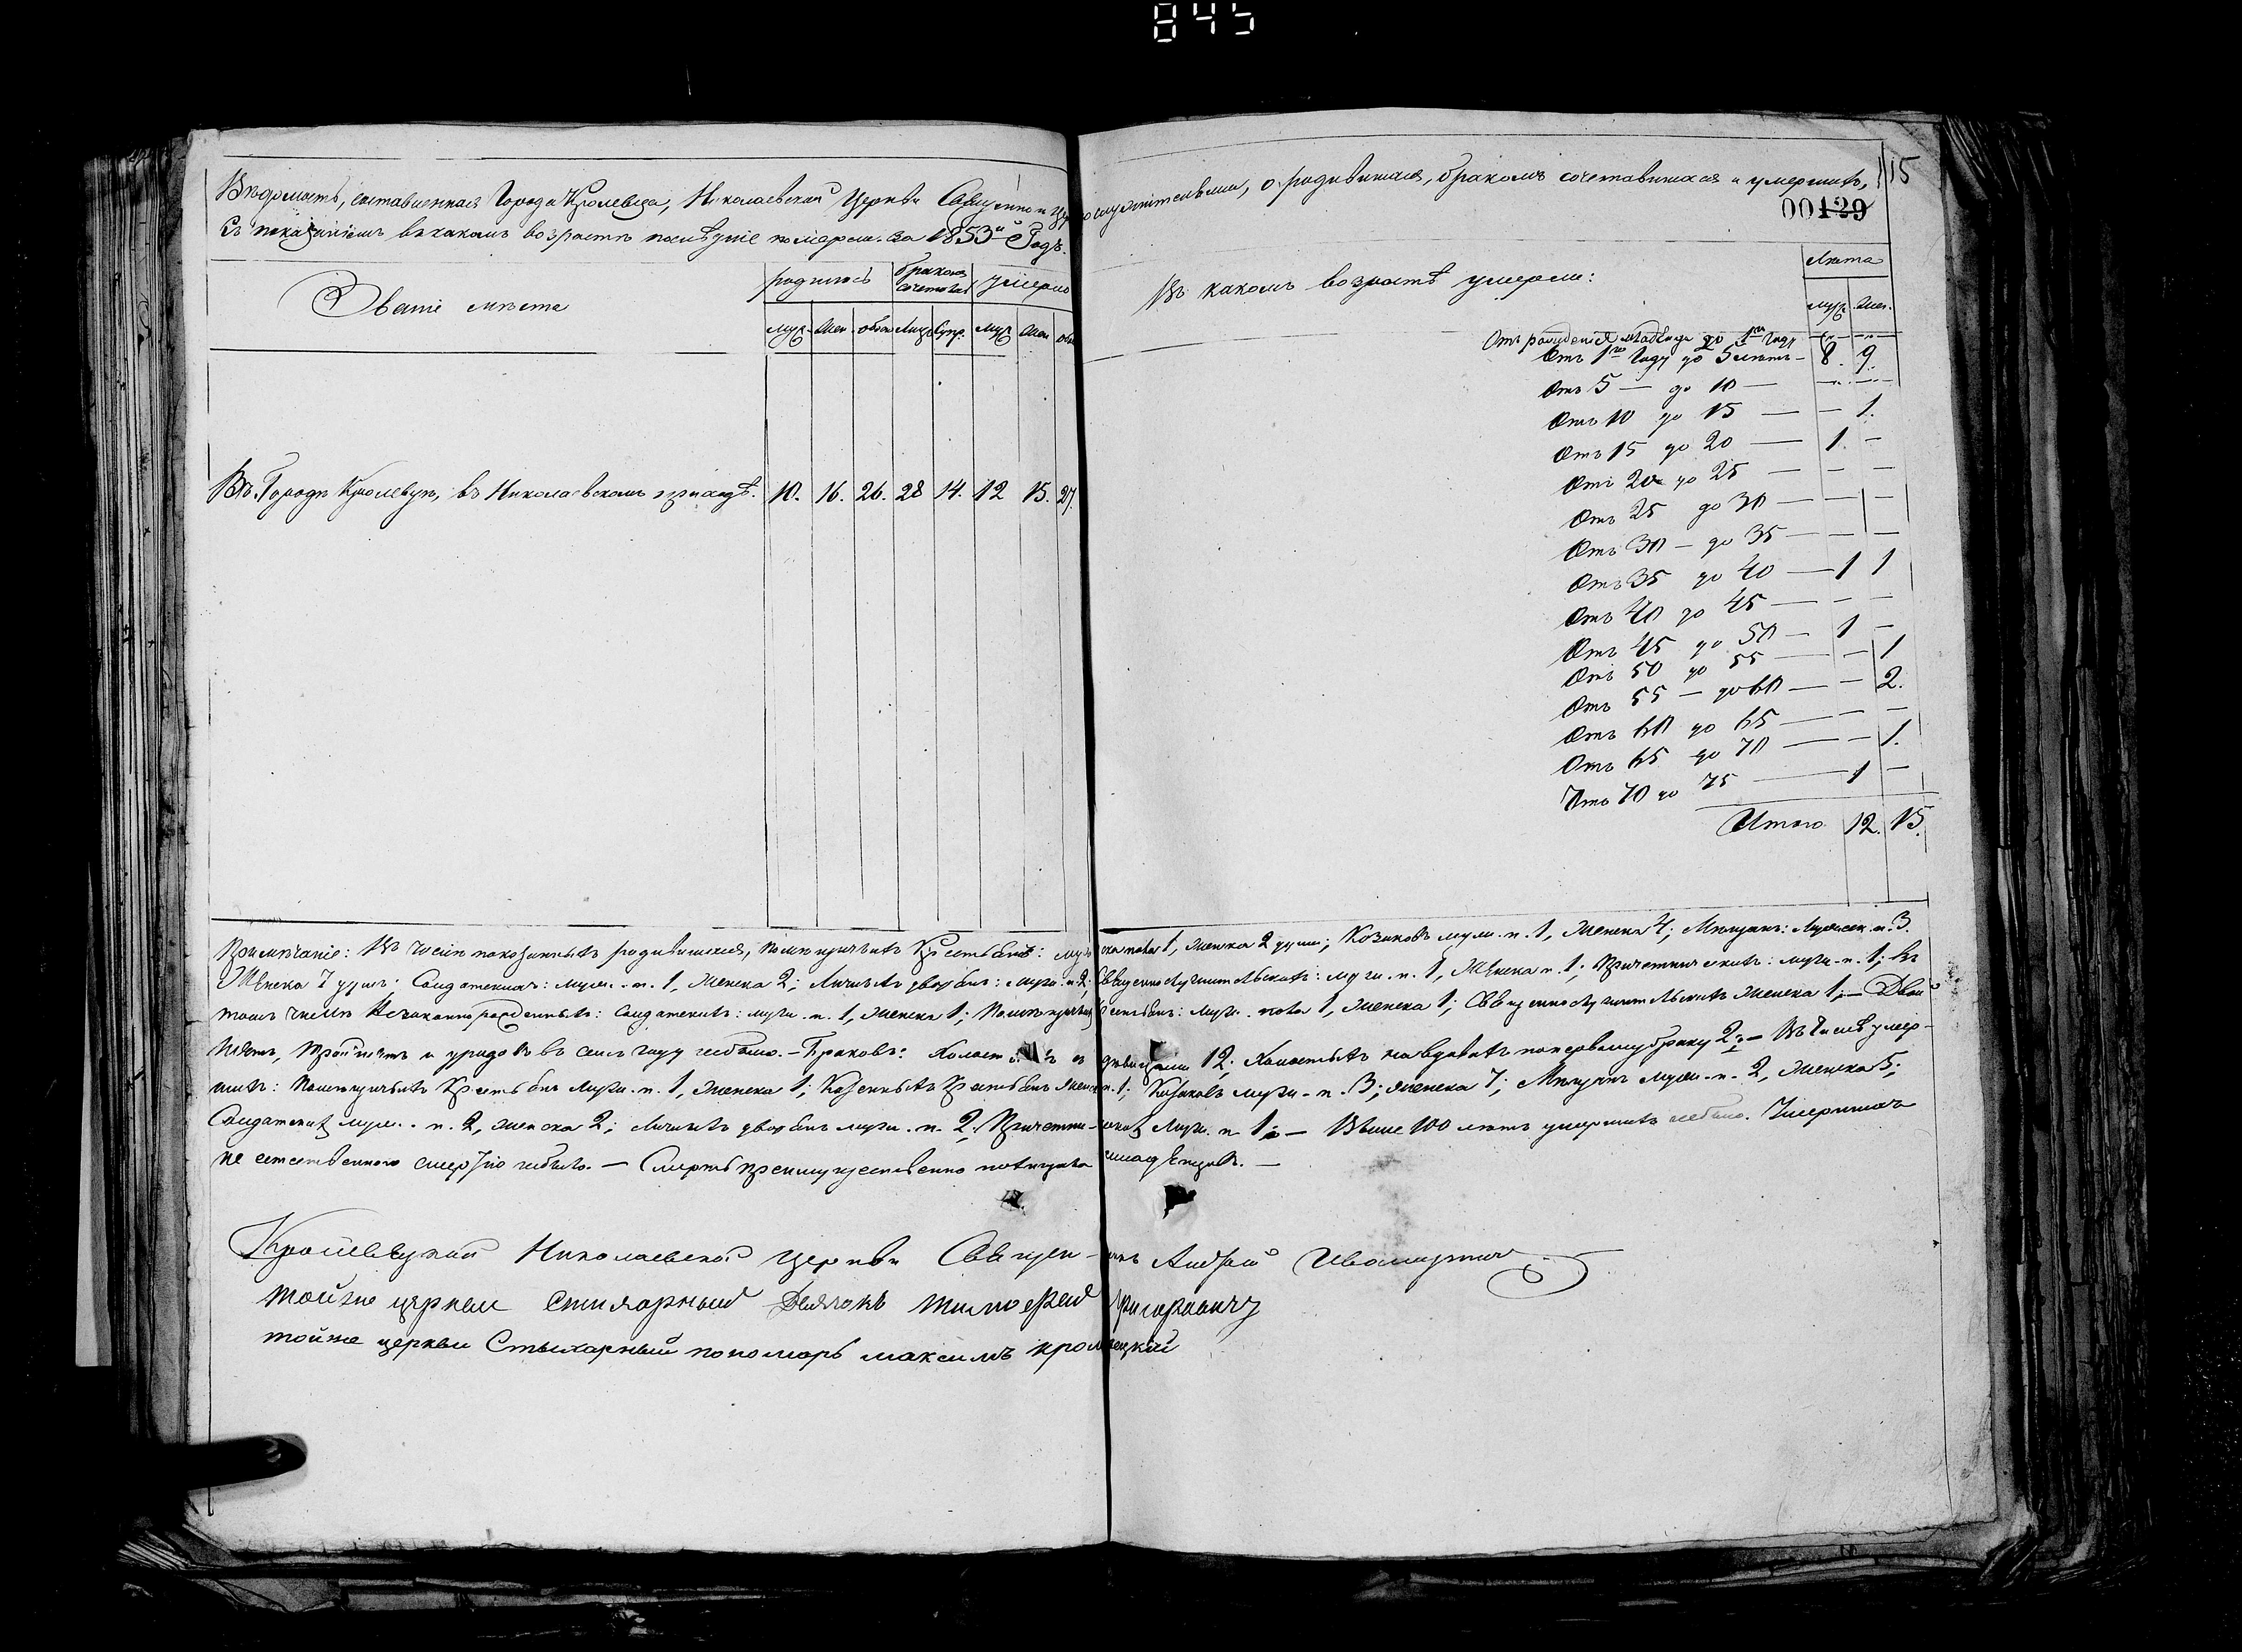 845
115
00129
Вѣдомость, составленная Города Кролевца, Николаевской Церкви Священно и Церковнослужителями, о родившихся, бракомъ сочетавшихся и умершихъ,
съ показаніемъ въ какомъ возрастѣ послѣдніе померли. За 1853й Годъ.
Званіе мѣста
родилось
бракомъ сочеталось
умерло
муж. жен. обои. Лицъ Супр. муж. жен. обо
Въ Городѣ Кролевцѣ, въ Николаевскомъ приходѣ. 10. 16. 26. 28 14. 12 15. 27.
Въ какомъ возрастѣ умерли:
Лѣта
муж. жен.
Отъ рожденія младенца до 1го Году
Отъ 1го Году до 5 лѣтъ – 8. 9.
Отъ 5 — до 10 —
Отъ 10 до 15 — — 1.
Отъ 15 до 20 — 1. –
Отъ 20 до 25 — — —
Отъ 25 до 30 — — —
Отъ 30 — до 35 — — —
Отъ 35 до 40 — 1 1
Отъ 40 до 45 — — —
Отъ 45 до 50 — 1 –
Отъ 50 до 55 — — 1
Отъ 55 — до 60 — — 2.
Отъ 60 до 65 — — —
Отъ 65 до 70 — — 1.
Отъ 70 до 75 — 1 —
Итого 12. 15.
Примѣчаніе: Въ числѣ показанныхъ родившихся, помѣщичьихъ Крестьянъ: мужеска пола 1, женска 2 души; Козаковъ муж. п. 1, женска 4; Мѣщанъ: Мужеск. п. 3.
Женска 7 душъ; Солдатскихъ: муж. п. 1, женска 2; Личныхъ дворянъ: муж. п. 2; Священнослужительскихъ: муж. п. 1, Женска п. 1; Причетническихъ: муж. п. 1; Въ
томъ числѣ Незаконнорожденныхъ: Солдатскихъ: муж. п. 1, женска 1; Помѣщичьихъ Крестьянъ: муж. пола 1, женска 1; Священнослужительскихъ женска 1; — Двой
нятъ, тройнятъ и уродовъ въ семъ году небыло. – Браковъ: Холостыхъ съ дѣвицами 12; Холостыхъ на вдовахъ по первому браку 2; — Въ Числѣ умер-
шихъ: Помѣщичьихъ Крестьянъ Муж. п. 1, женска 1; Казенныхъ Крестьянъ Женск. п. 1; Козаковъ муж. п. 3; женска 7; Мѣщанъ муж. п. 2, женска 5;
Солдатскихъ муж. п. 2, женска 2; Личныхъ дворянъ муж. п. 2; Причетническихъ Муж. п. 1; — Выше 100 лѣтъ умершихъ небыло. Умершихъ
не естественною смертію небыло. — Смерть преимущественно постигала младенцовъ. —
Кролевецкой Николаевской Церкви Священникъ Андрей
тойже церкви Стихарный Дьячокъ Тимофей
тойже церкви Стихарный пономарь Максимъ